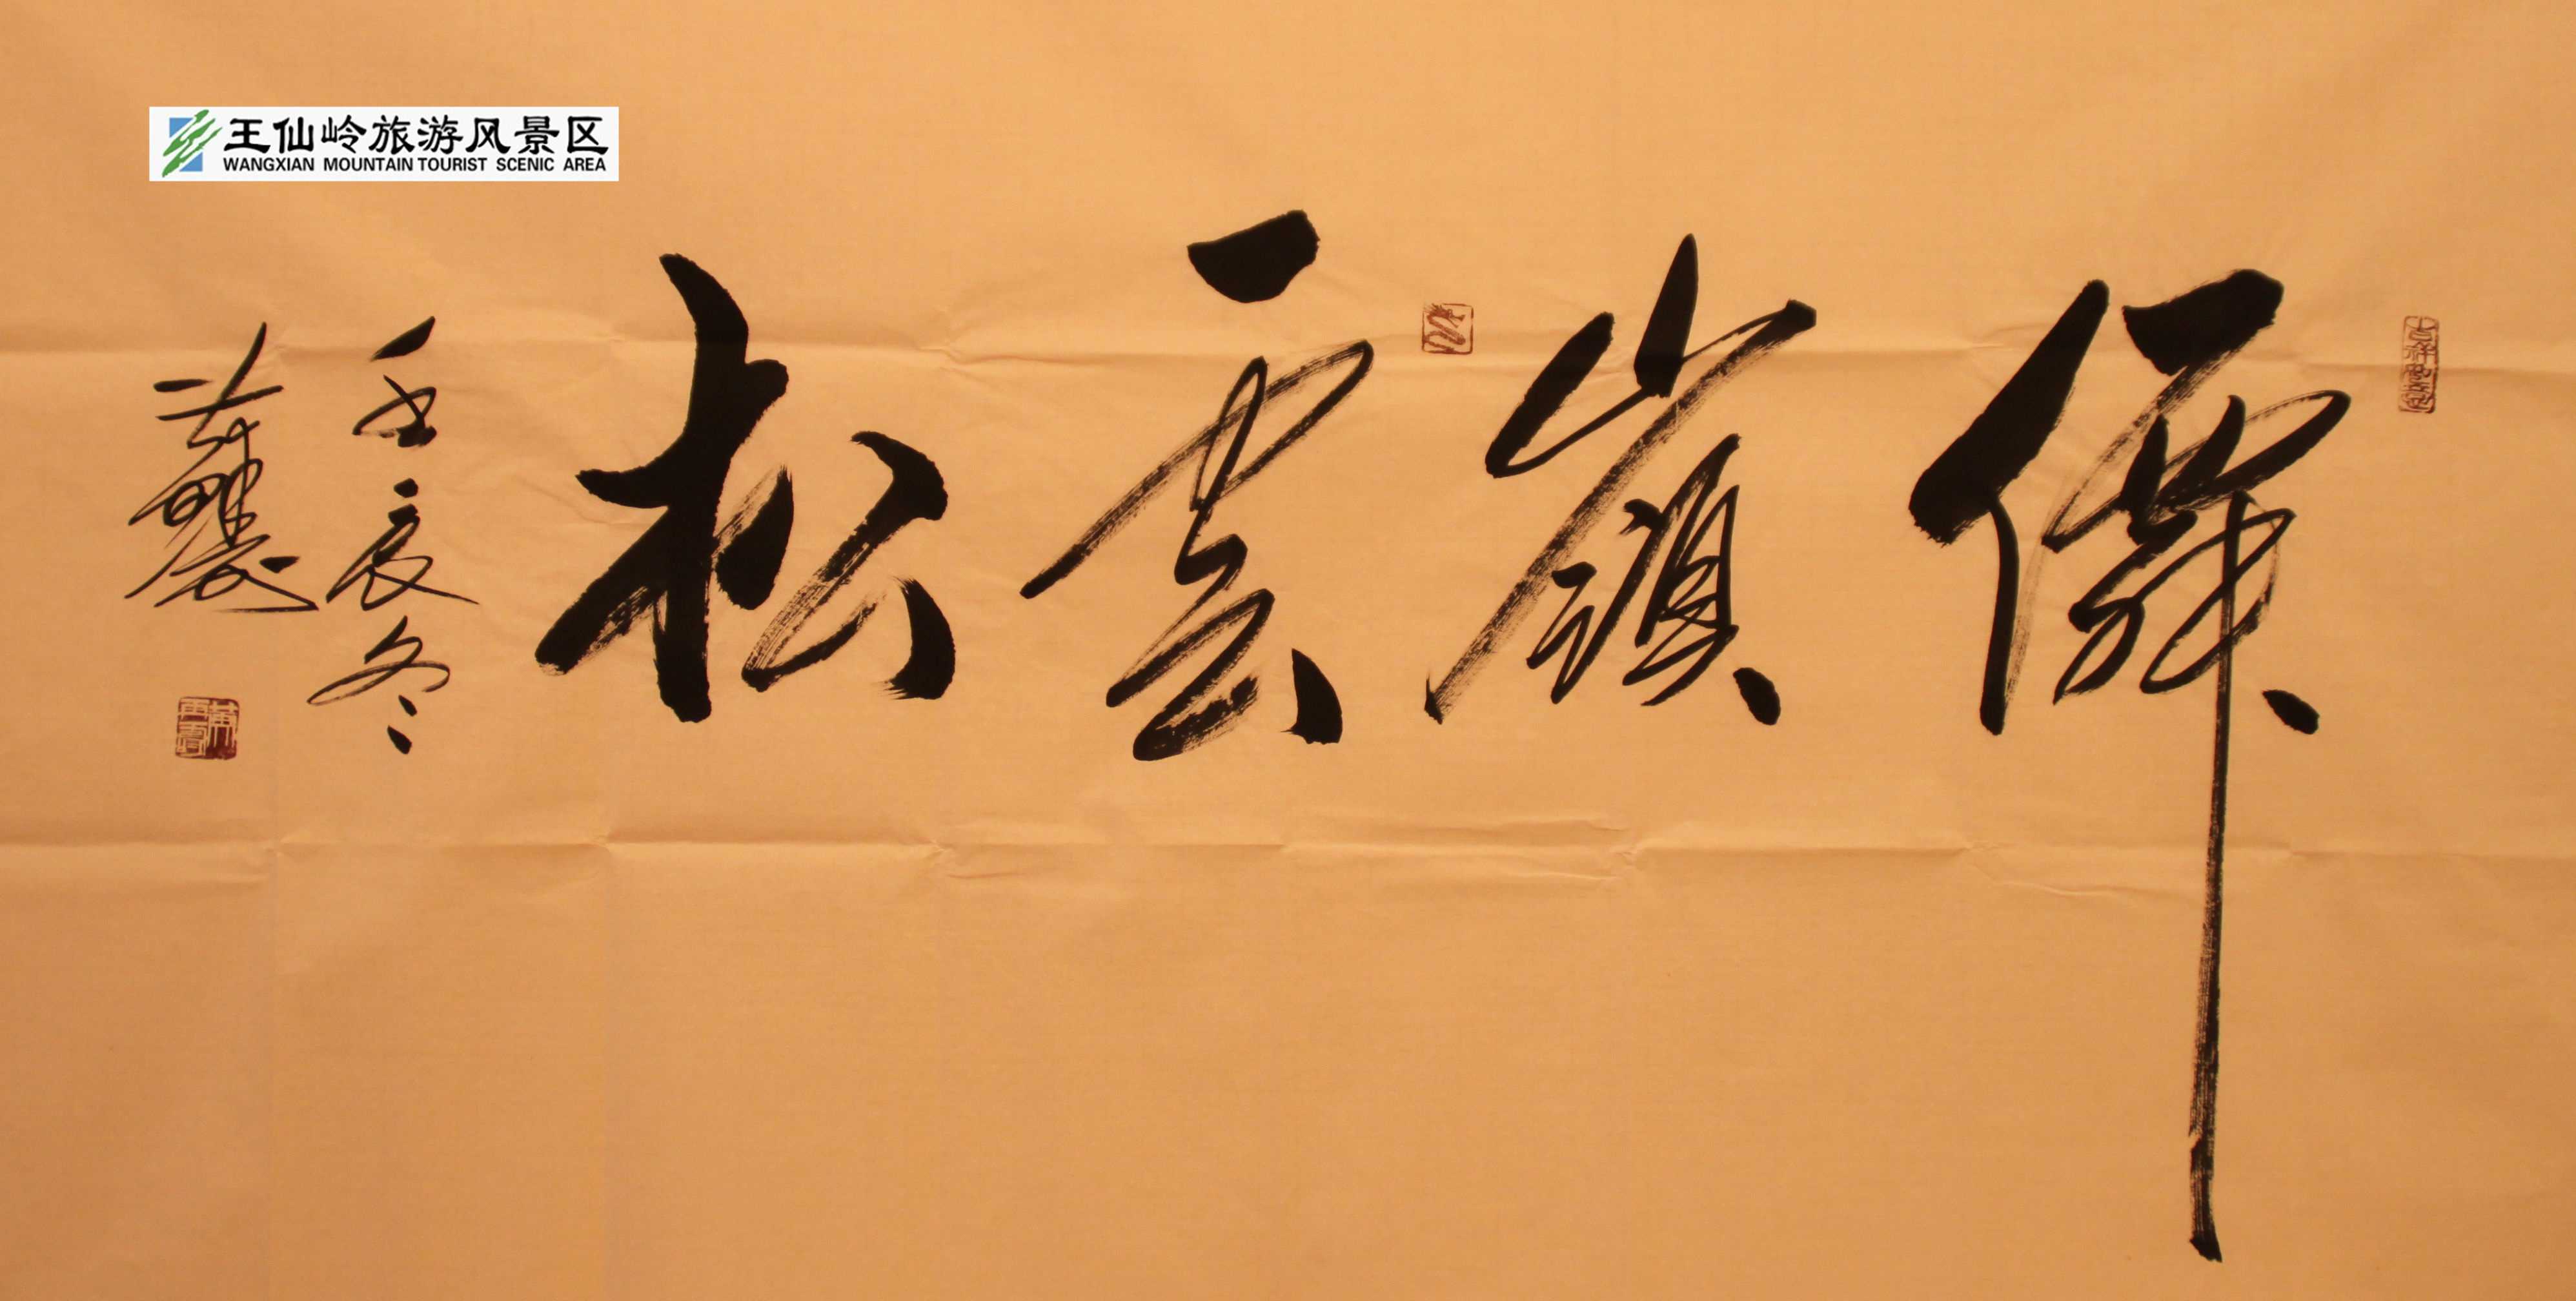 王仙岭旅游风景区
WANGXIAN MOUNTAIN TOURIST SCENIC AREA
僊嶺雲松
壬辰冬